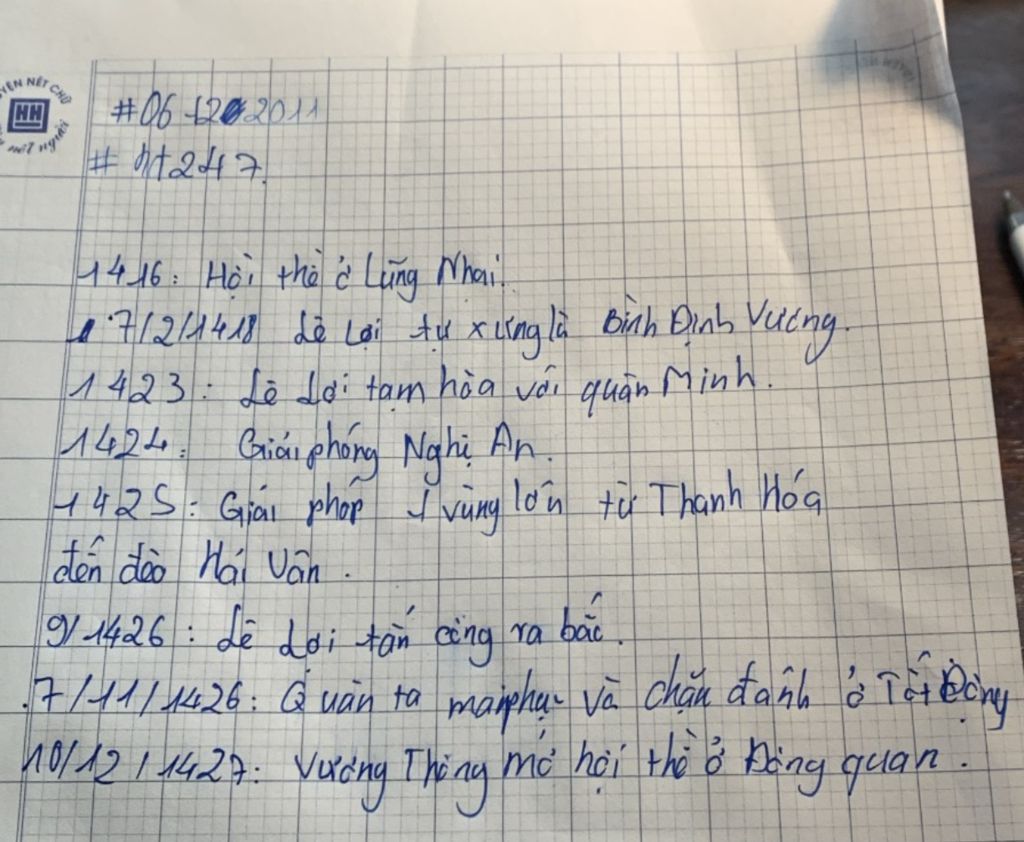 YỆN NÉT CHỮ
HH
nết người
#06-12-2011
# ht247.
1416: Hội thề ở Lũng Nhai.
7/2/1418 Lê Lợi tự xưng là Bình Định Vương.
1423: Lê Lợi tạm hòa với quân Minh.
1424: Giải phóng Nghệ An.
1425: Giải phóp 1 vùng lớn từ Thanh Hóa
đến đèo Hải Vân.
9/1426: Lê Lợi tấn công ra bắc.
7/11/1426: Quân ta mai phục và chặn đánh ở Tốt Động
10/12/1427: Vương Thông mở hội thề ở Đông quan.